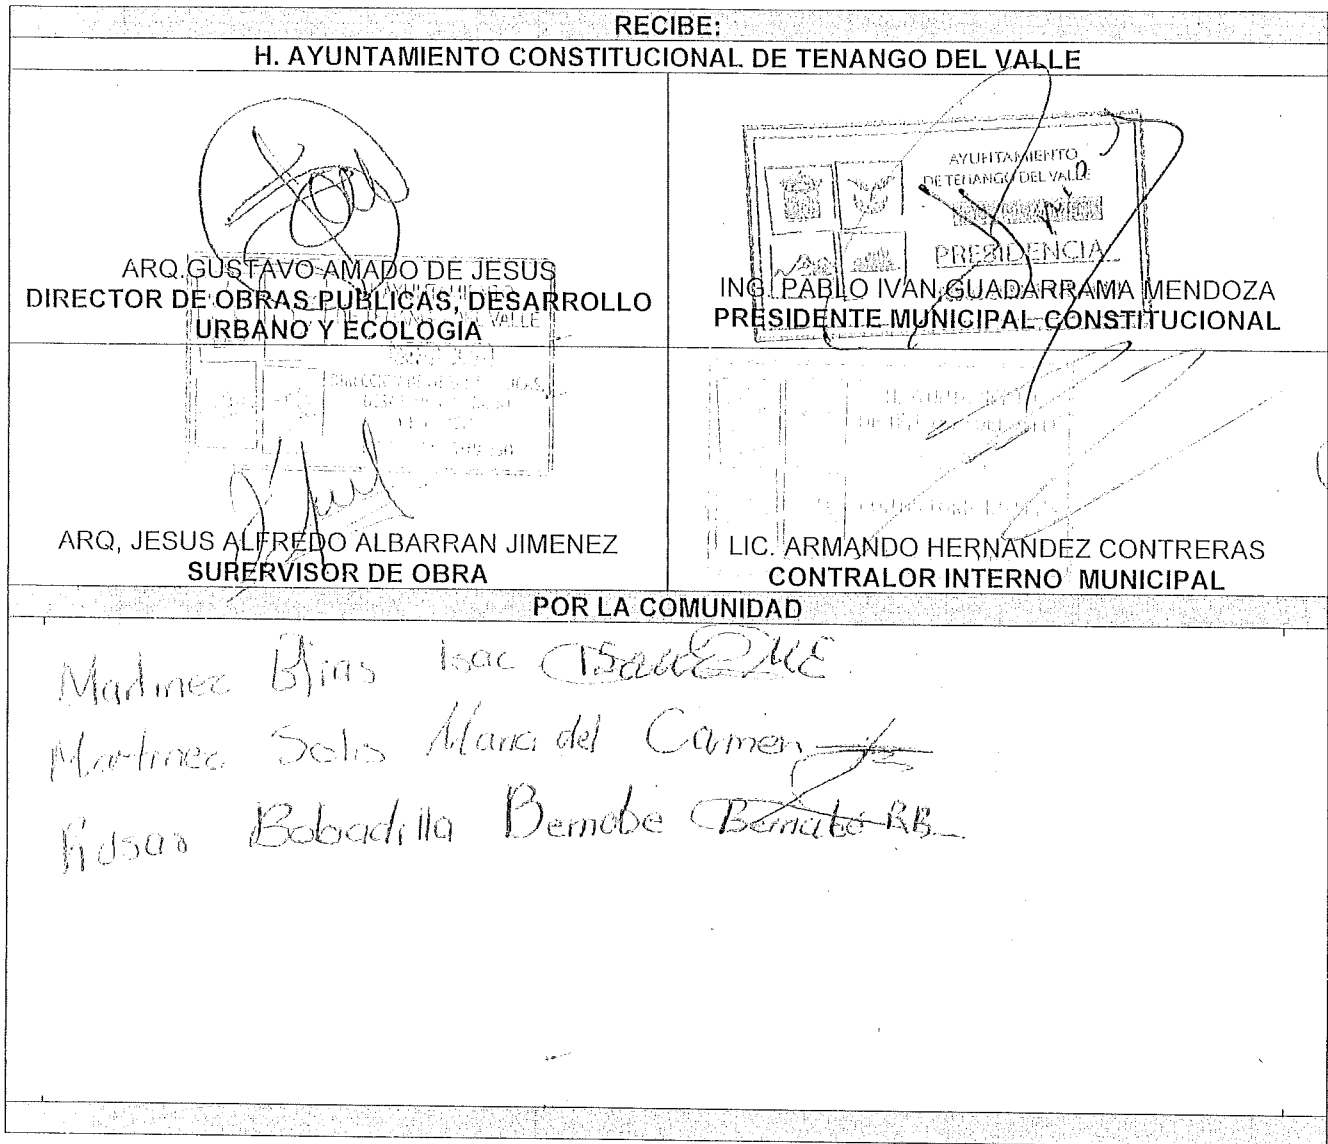 RECIBE:
H. AYUNTAMIENTO CONSTITUCIONAL DE TENANGO DEL VALLE
ARQ.GUSTAVO AMADO DE JESUS
DIRECTOR DE OBRAS PUBLICAS, DESARROLLO
URBANO Y ECOLOGIA
AYUNTAMIENTO
DE TENANGO DEL VALLE
PRESIDENCIA
ING. PABLO IVAN GUADARRAMA MENDOZA
PRESIDENTE MUNICIPAL CONSTITUCIONAL
ARQ, JESUS ALFREDO ALBARRAN JIMENEZ
SUPERVISOR DE OBRA
LIC. ARMANDO HERNANDEZ CONTRERAS
CONTRALOR INTERNO MUNICIPAL
POR LA COMUNIDAD
Martinez Isac
Martinez Solis Maria del Carmen
Bobadilla Bernobe Bernabe RB